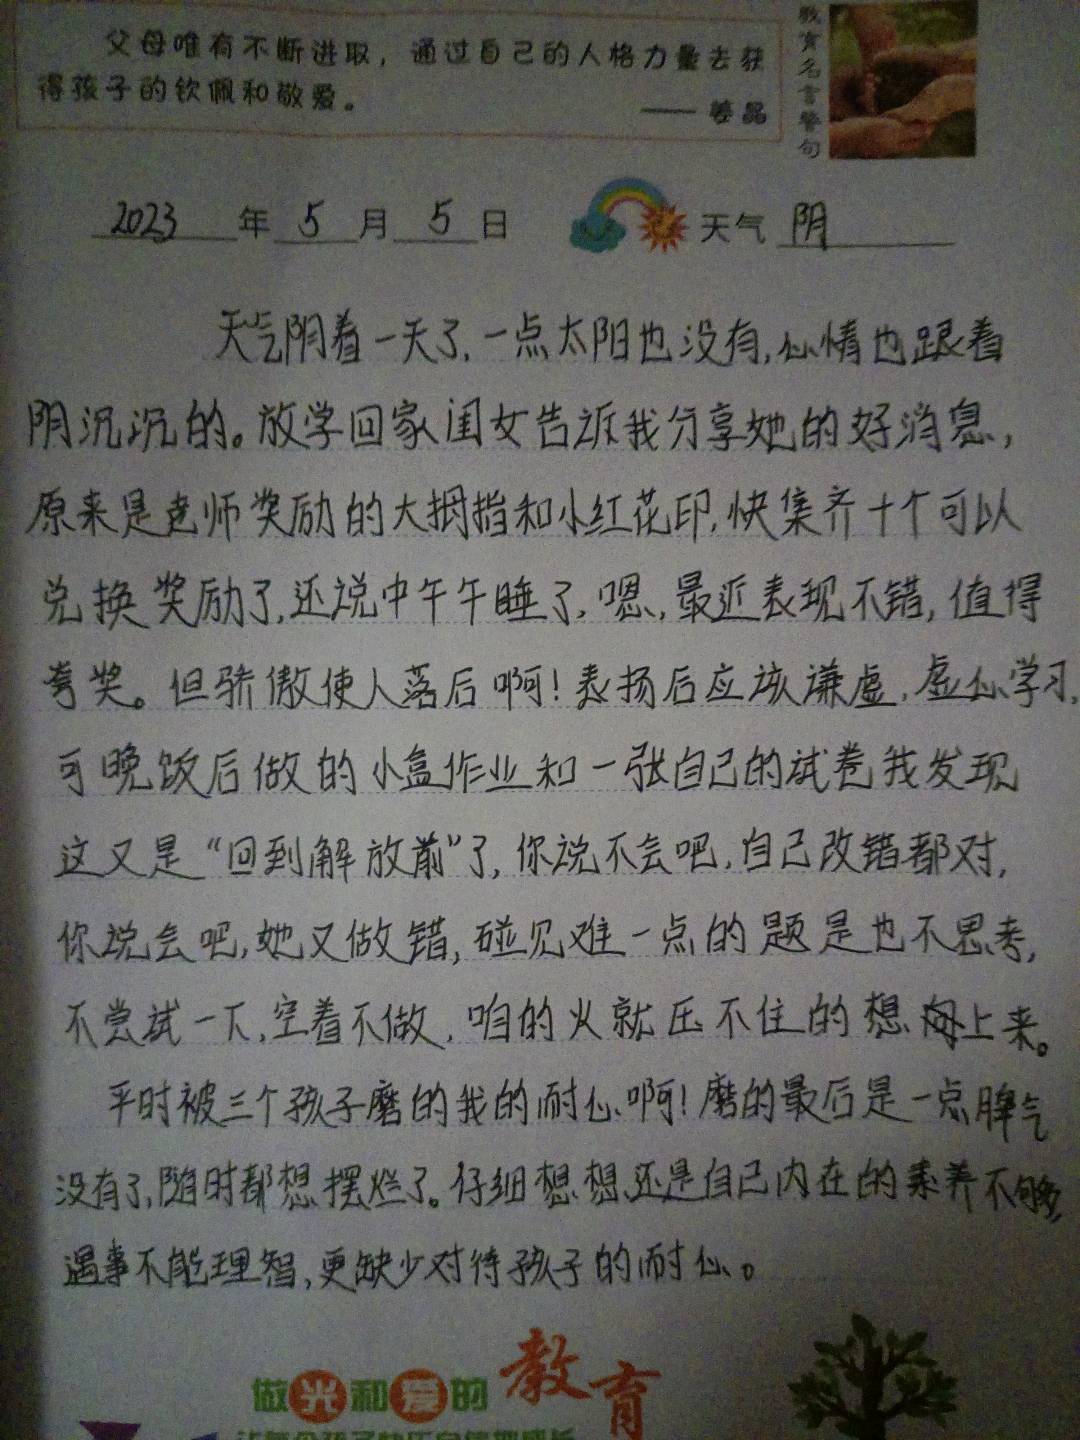 父母唯有不断进取，通过自己的人格力量去获
得孩子的钦佩和敬爱。
—— 姜晶
教育名言警句
2023年5月5日 天气 阴
天气阴着一天了,一点太阳也没有,心情也跟着
阴沉沉的。放学回家闺女告诉我分享她的好消息,
原来是老师奖励的大拇指和小红花印,快集齐十个可以
兑换奖励了,还说中午午睡了,嗯,最近表现不错,值得
夸奖。但骄傲使人落后啊!表扬后应该谦虚,虚心学习,
可晚饭后做的小盒作业和一张自己的试卷我发现
这又是“回到解放前”了,你说不会吧,自己改错都对,
你说会吧,她又做错,碰见难一点的题是也不思考,
不尝试一下,空着不做,咱的火就压不住的想向上来。
平时被三个孩子磨的我的耐心啊!磨的最后是一点脾气
没有了,随时都想摆烂了。仔细想想,还是自己内在的素养不够,
遇事不能理智,更缺少对待孩子的耐心。
做光和爱的教育